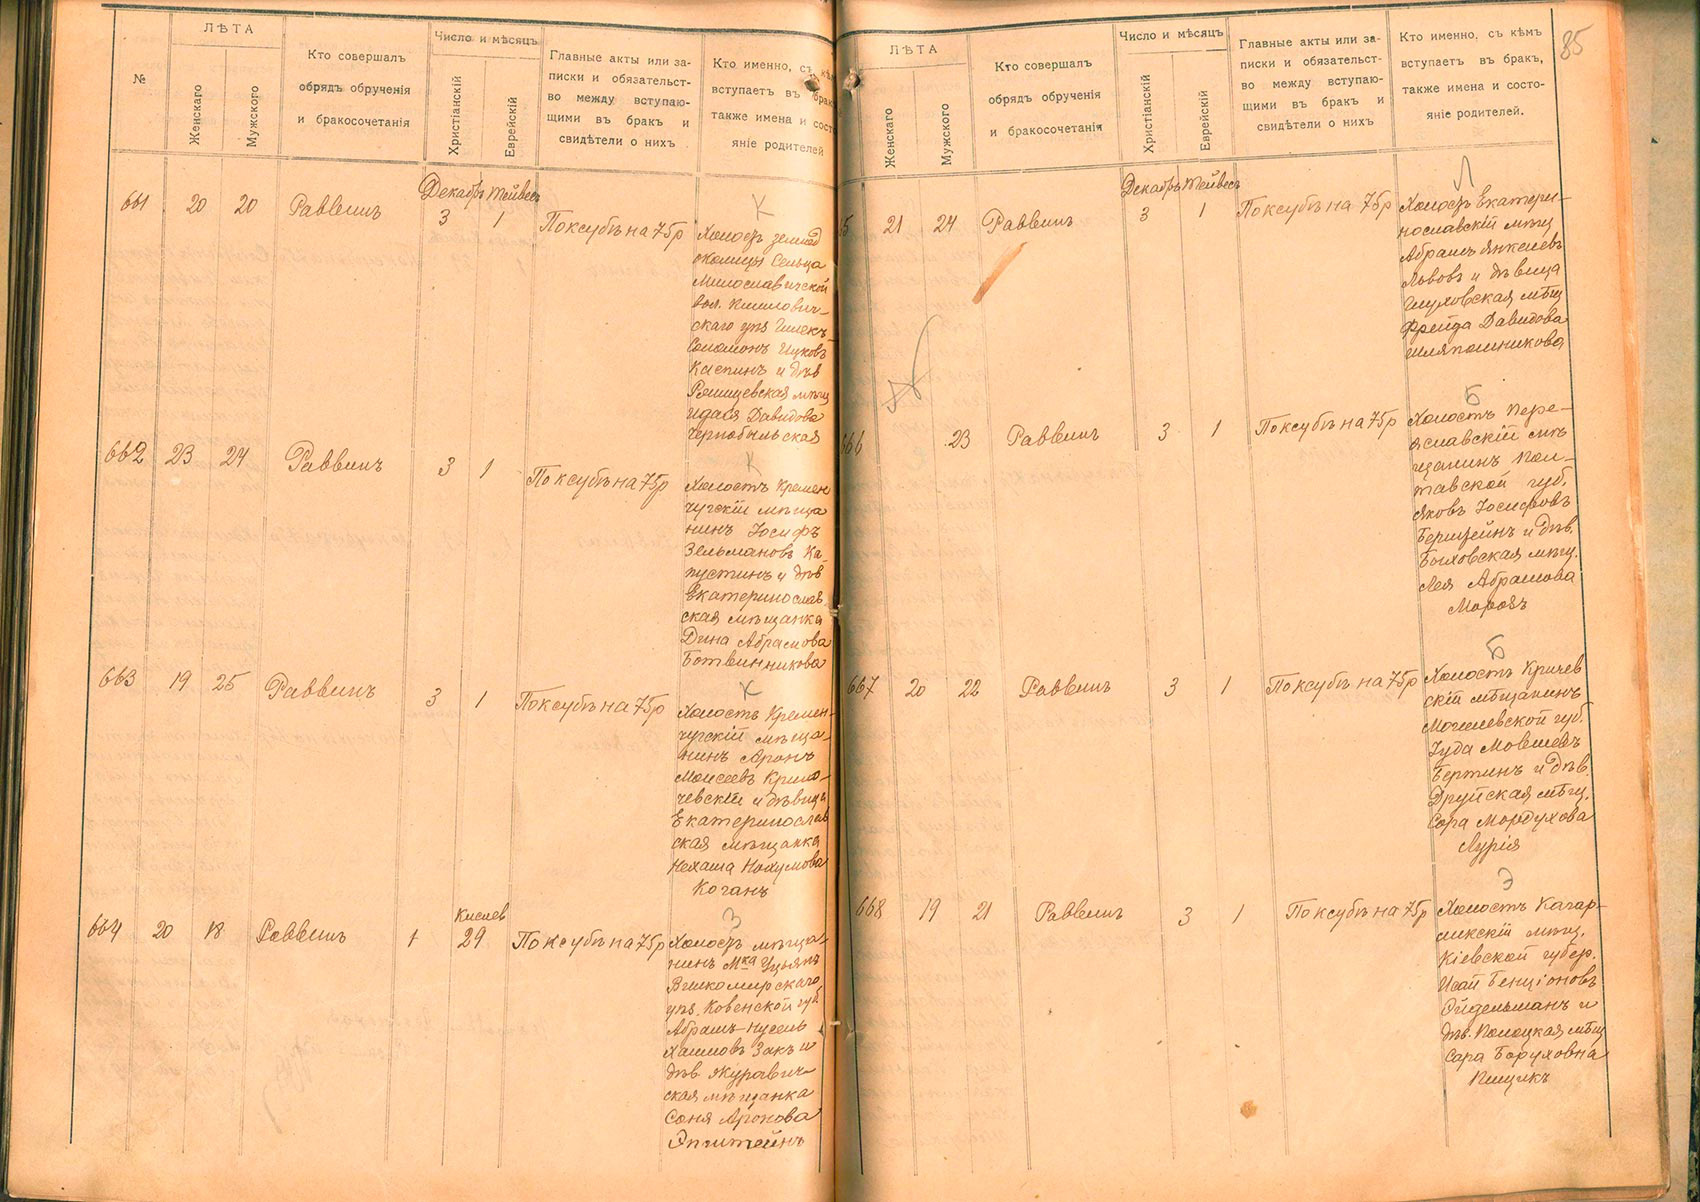 №
ЛѢТА
Женскаго
Мужского
Кто совершалъ
обрядъ обрученія
и бракосочетанія
Число и мѣсяцъ
Христіанскій
Еврейскій
Главные акты или за-
писки и обязательст-
во между вступаю-
щими въ бракъ и
свидѣтели о нихъ
Кто именно, съ кѣмъ
вступаетъ въ бракъ
также имена и состо
яніе родителей
661 20 20 Раввинъ Декабрь 3 Тейвесъ 1 По ксубѣ на 75р
К
Холостъ землед
Сельца
Милославичской
вол. Климович-
скаго уѣз
Соломонъ Ицковъ
Каспинъ и дѣв
мѣщ
Давидова
Чернобыльская
662 23 24 Раввинъ 3 1 По ксубѣ на 75р
К
Холостъ Кремен
чугскій мѣща
нинъ Іосифъ
Зельмановъ Ка-
пустинъ и дѣв
Екатеринослав
ская мѣщанка
Дина Абрамова
Ботвинникова
663 19 25 Раввинъ 3 1 По ксубѣ на 75р
К
Холостъ Кремен-
чугскій мѣща-
нинъ Аронъ
Моисеевъ Крино-
чевскій и дѣвица
Екатеринослав
ская мѣщанка
Нехама Нохумова
Коганъ
664 20 18 Раввинъ 1 Кислев 29 По ксубѣ на 75р
З
Холостъ мѣща-
нинъ Мка Уцянъ
Вилкомирскаго
уѣз. Ковенской губ
Абрамъ-Нусенъ
Хаимовъ Закъ и
дѣв. Журавич-
ская мѣщанка
Соня Аронова
Эпштейнъ
85
ЛѢТА
Женскаго
Мужского
Кто совершалъ
обрядъ обрученія
и бракосочетанія
Число и мѣсяцъ
Христіанскій
Еврейскій
Главные акты или за-
писки и обязательст-
во между вступаю-
щими въ бракъ и
свидѣтели о нихъ
Кто именно, съ кѣмъ
вступаетъ въ бракъ,
также имена и состо-
яніе родителей.
5 21 24 Раввинъ Декабрь 3 Тейвесъ 1 По ксубѣ на 75р
Л
Холостъ Екатери-
нославскій мѣщ
Абрамъ Янкелевъ
Львовъ и дѣвица
Глуховская мѣщ
Фрейда Давидова
Шляпошникова
666 23 Раввинъ 3 1 По ксубѣ на 75р
Б
Холостъ Пере-
яславскій мѣ
щанинъ Пол-
тавской губ.
Яковъ Іосифовъ
Бернштейнъ и дѣв.
Быховская мѣщ.
Лея Абрамова
Морозъ
667 20 22 Раввинъ 3 1 По ксубѣ на 75р
Б
Холостъ Кричев
скій мѣщанинъ
Могилевской губ.
Іуда Мовшевъ
Бертинъ и дѣв.
Друйская мѣщ.
Сора Мордухова
Лурія
668 19 21 Раввинъ 3 1 По ксубѣ на 75р
Э
Холостъ Кагар-
ликскій мѣщ.
Кіевской губер.
Исай Бенціоновъ
Эйдельманъ и
дѣв. Полоцкая мѣщ
Сара Боруховна
Пищикъ